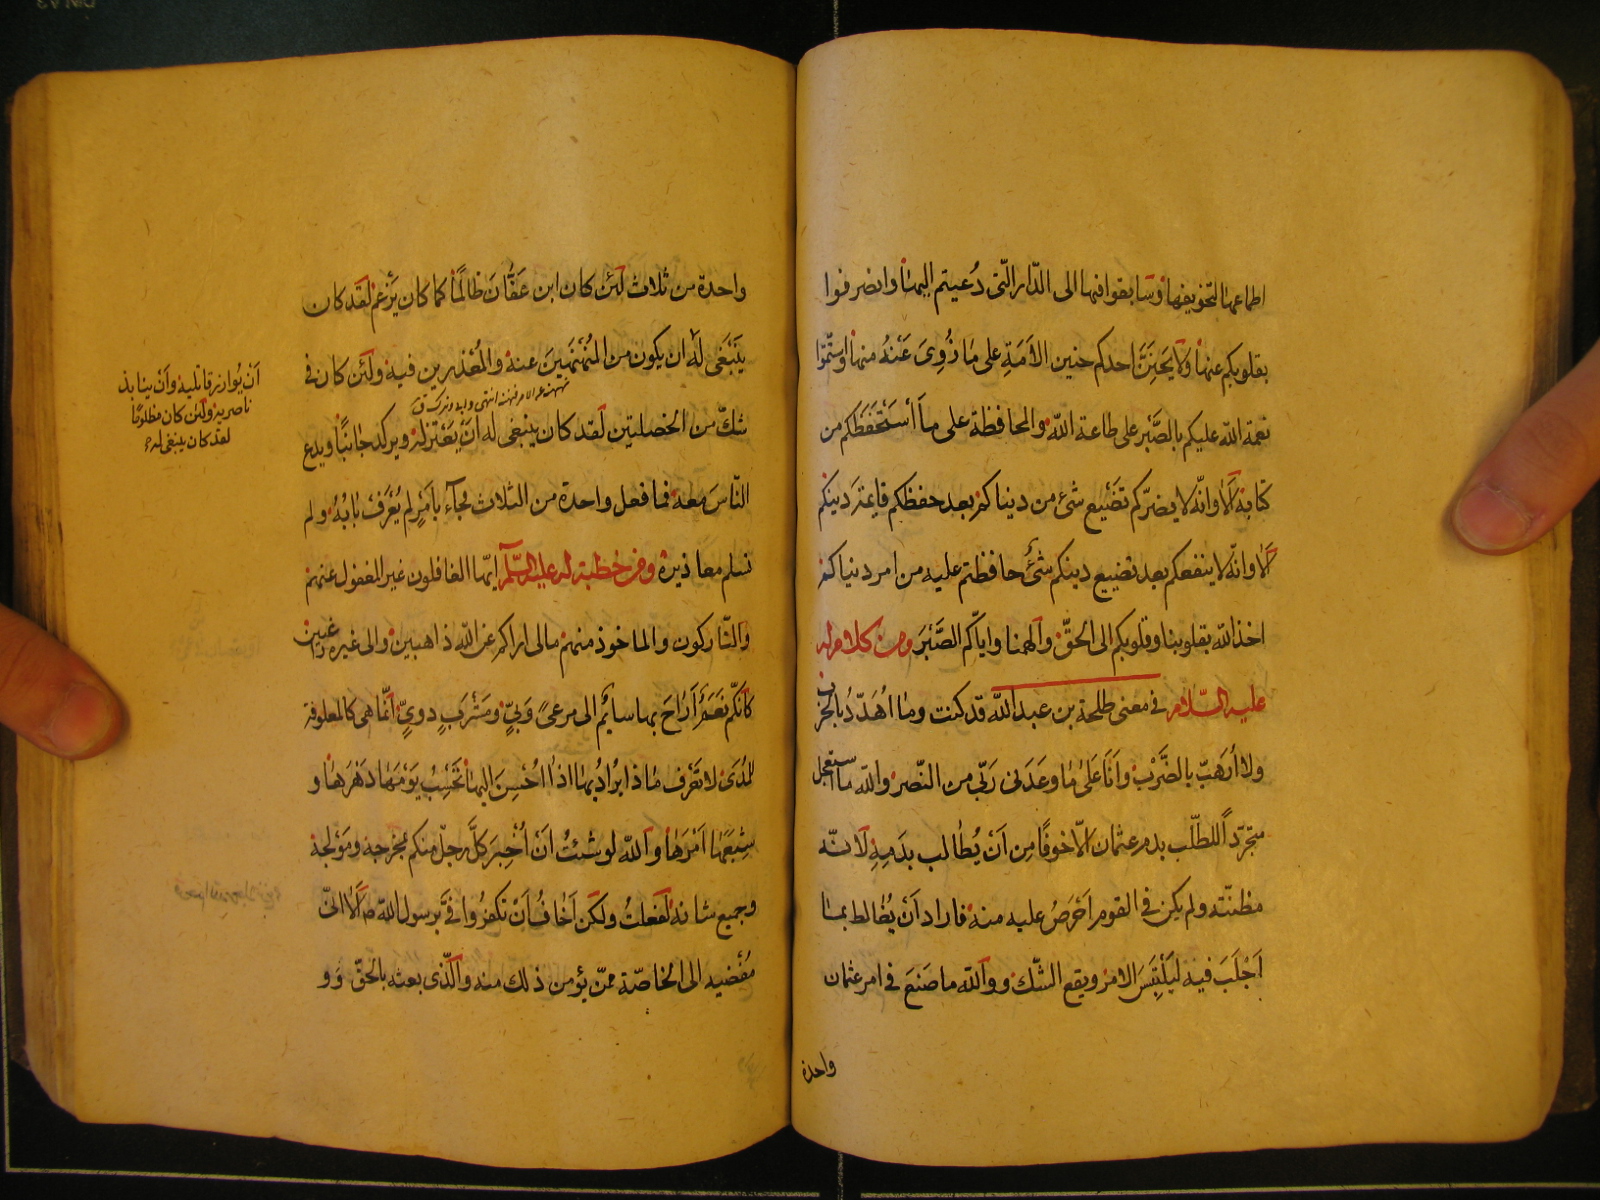 اطماعها لتخويفها وسابقوا فيها الى الدّار الّتى دُعيتم اليها وانصرفوا
بقلوبكم عنها ولا يَحِنَنَّ احدكم حنين الاَمَةِ على مَا زُوِىَ عَنْهُ منها واستمّوا
نعمة اللّه عليكم بالصَّبْر على طاعة اللّه والمحافظة على مااسْتَحْفَظَكم من
كتابه اَلا وانّه لا يضرّكم تَضْيِيع شئ من دنياكم بعد حفظكم قايمَة دينكم
اَلا وانّه لا ينفعكم بعد تضييع دينكم شئٌ حافظتم عليه من امر دنياكم
اخذ اللّه بقلوبنا وقلوبكم الى الحقّ وَالهمنا واياكم الصَّبْرَ ومن كلام له
عليه السّلام فى معنى طلحة بن عبد اللّه قد كنت وما اُهَدَّدُ بالحرب
ولا اُرَهَّبُ بالضَّرْب وَاَنَا عَلىٰ مَا وعَدَنى رَبّى من النّصر واللّه ما استعجل
متجرّداً للطّلب بدم عثمان الّا خوفًا مِن اَنْ يُطالب بدَمِهِ لَانّه
مظنّته ولم يكن فى القوم اَحْرَصُ عليه منه فاراد اَنْ يُغالط بما
اَجْلَبَ فيه ليَلْتَبِسَ الامر ويقع الشّك ووَاللّه ما صَنَعَ فى امر عثمان
واحدة
واحدة من ثلاث لَئن كان ابن عَفّان ظالمًا كما كان يَزْعم لَقد كان
يَنْبَغى لَه ان يكون من المُنَهْنهين عنه والمُعْذرين فيه ولَئن كان فى
شكّ من الخصلتين لَقد كان ينبغى له اَنْ يَعْتزله ويركد جانبًا ويدع
النّاسَ معه فما فعل واحدة من الثلاث وجآء بأمْرٍ لم يُعْرَف بَابُهُ ولم
تسلم معاذيرهُ ومن خطبة له عليه السّلم ايّها الغافلون غير المغفول عنهم
والتّاركون والماخوذ منهم مالى اراكم عن اللّه ذاهبين والى غيره راغبين
كَانّكم نَعَمٌ اَرَاحَ بها سائمٌ الى مرعىً وَبىٍّ ومَشْرَبٍ دوىٍّ اَنّما هى كالمعلوفة
للمُدَى لا تَعْرف ماذا يُرادُ بها اذا اُحْسِنَ اليها تَحْسَبُ يَوْمَهَا دَهْرَها و
شِبَعَها اَمْرَها وَاللّه لو شئتُ اَنْ اُخْبِرَ كلَّ رجلٍ منكم بمَخرجه ومَوْلجه
وجميع شانه لَفَعلتُ ولَكن اَخافُ اَنْ تكفرُوا فىَّ برسول اللّه ص اَلا وانىّ
مُفْضيه الى الخاصّة ممّن يؤمن ذلك منه وَالّذى بعثه بالحقّ وَو
اَنْ يُوازر قاتليه وَاَنْ ينابذ
ناصريه ولَئن كان مظلومًا
لقد كان ينبغى له